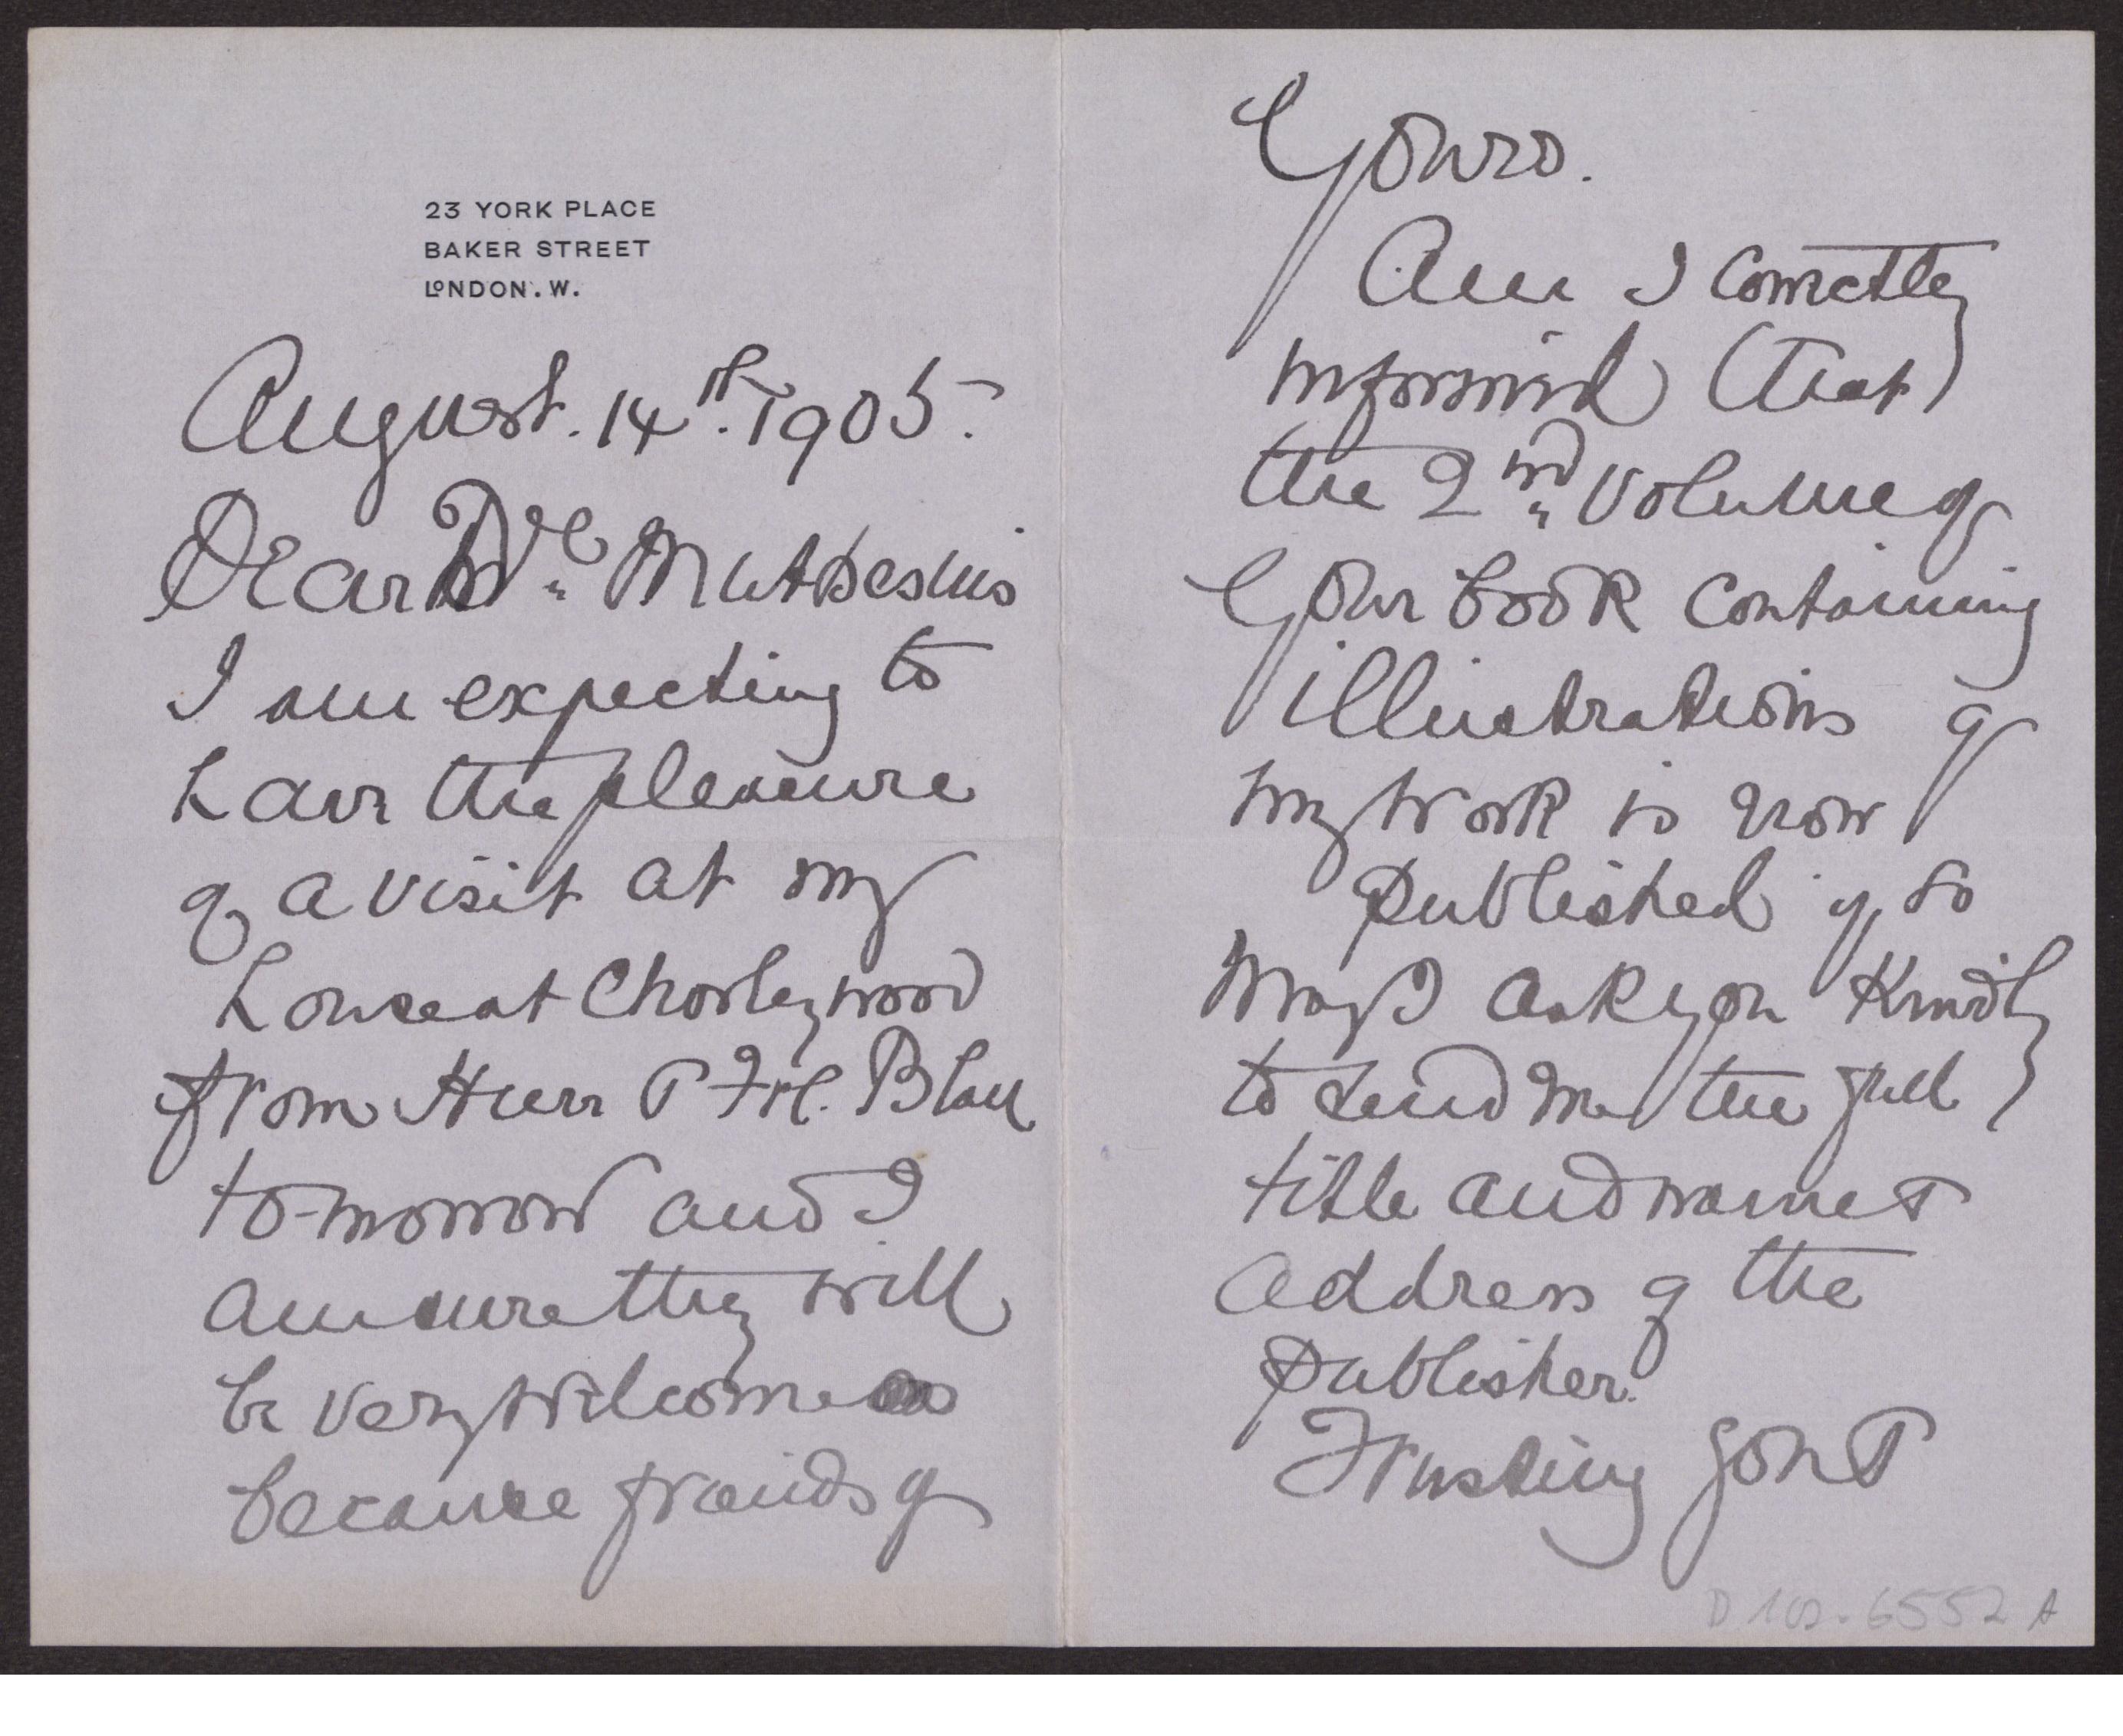 23 YORK PLACE
BAKER STREET
LONDON. W.
August. 14th. 1905.
Dear Dr. Muthesius
I am expecting to
have the pleasure
of a visit at my
house at Chorleywood
from Herr & Frl. Blau
to-morrow and I
am sure they will
be very welcome
because friends of
Yours.
Am I correctly
informed (that)
the 2nd Volume of
Your book containing
illustrations of
my work is now
published if so
may I ask you Kindly
to send me the full
title and name &
address of the
publisher.
Trusting you &
D 102-6552 A